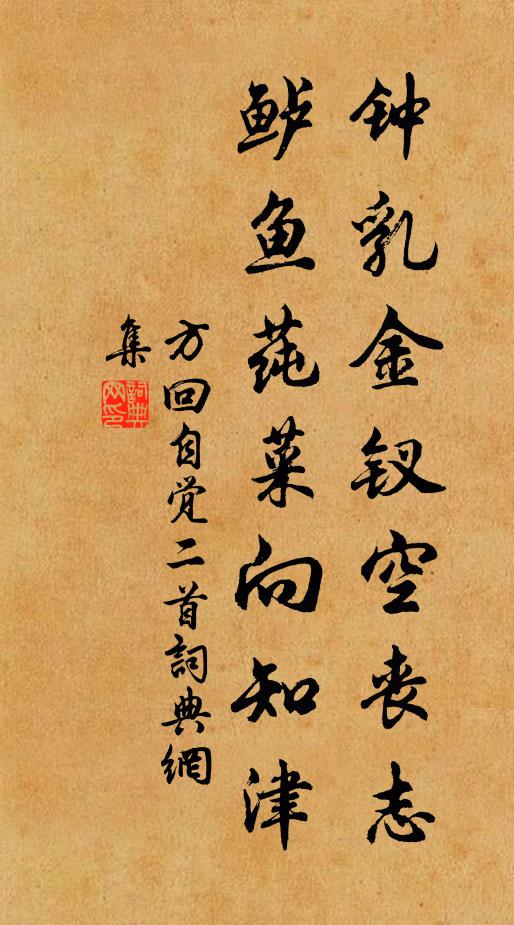 钟乳金钗空丧志
鲈鱼莼菜向知津
方回自觉二首詞典網
集
詞典网印